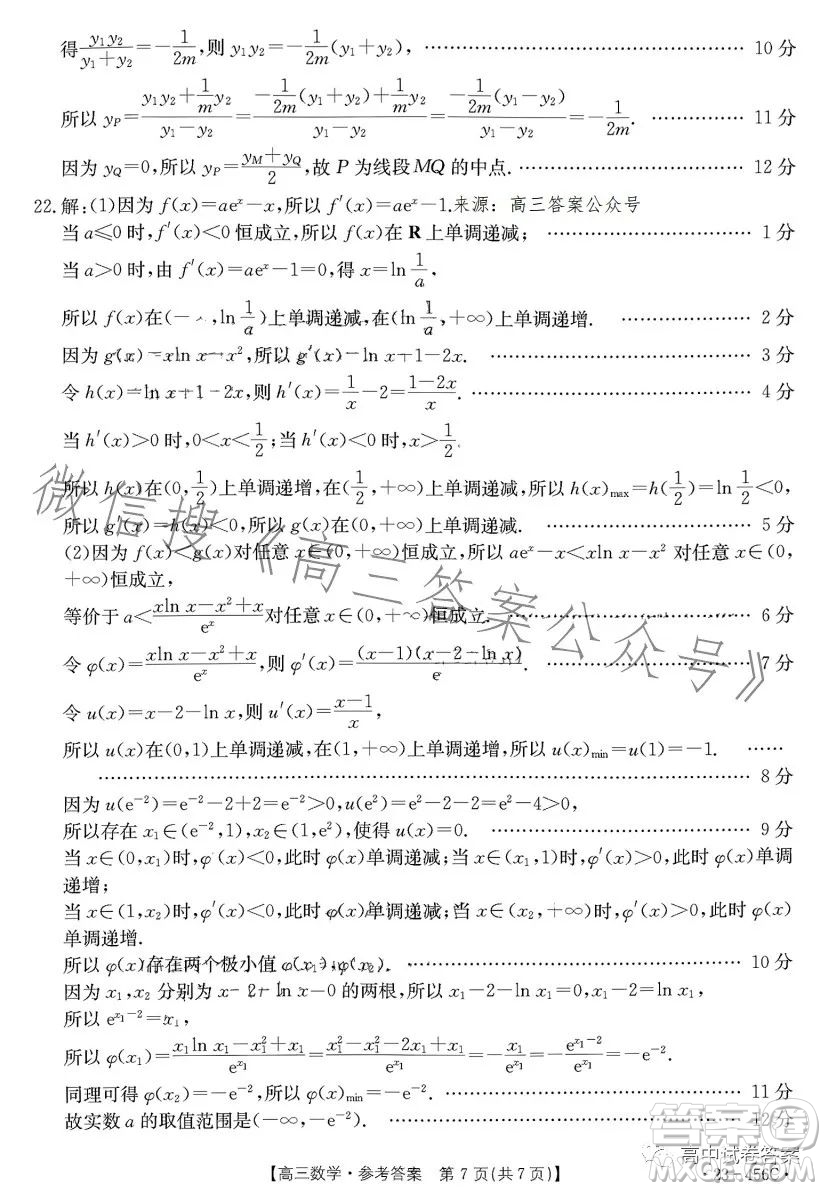 得\frac{y_1y_2}{y_1+y_2}=-\frac{1}{2m},则 y_1y_2=-\frac{1}{2m}(y_1+y_2), …… 10 分
所以 y_P=\frac{y_1y_2+\frac{1}{m}y_2}{y_1-y_2}=\frac{-\frac{1}{2m}(y_1+y_2)+\frac{1}{m}y_2}{y_1-y_2}=\frac{-\frac{1}{2m}(y_1-y_2)}{y_1-y_2}=-\frac{1}{2m}. …… 11 分
因为 y_Q=0,所以 y_P=\frac{y_M+y_Q}{2},故 P 为线段 MQ 的中点. …… 12 分
22.解:(1)因为 f(x)=ae^x-x,所以 f'(x)=ae^x-1.来源:高三答案公众号
当 a≤0 时,f'(x)<0 恒成立,所以 f(x)在 R 上单调递减; …… 1 分
当 a>0 时,由 f'(x)=ae^x-1=0,得 x=ln\frac{1}{a},
所以 f(x)在(-∞,ln\frac{1}{a})上单调递减,在(ln\frac{1}{a},+∞)上单调递增. …… 2 分
因为 g(x)=xln x-x^2,所以 g'(x)=ln x+1-2x. …… 3 分
令 h(x)=ln x+1-2x,则 h'(x)=\frac{1}{x}-2=\frac{1-2x}{x}. …… 4 分
当 h'(x)>0 时,0<x<\frac{1}{2};当 h'(x)<0 时,x>\frac{1}{2}.
所以 h(x)在(0,\frac{1}{2})上单调递增,在(\frac{1}{2},+∞)上单调递减,所以 h(x)_{max}=h(\frac{1}{2})=ln\frac{1}{2}<0,
所以 g'(x)=h(x)<0,所以 g(x)在(0,+∞)上单调递减. …… 5 分
(2)因为 f(x)<g(x)对任意 x∈(0,+∞)恒成立,所以 ae^x-x<xln x-x^2 对任意 x∈(0,
+∞)恒成立,
等价于 a<\frac{xln x-x^2+x}{e^x}对任意 x∈(0,+∞)恒成立. …… 6 分
令 φ(x)=\frac{xln x-x^2+x}{e^x},则 φ'(x)=\frac{(x-1)(x-2-ln x)}{e}. …… 7 分
令 u(x)=x-2-ln x,则 u'(x)=\frac{x-1}{x},
所以 u(x)在(0,1)上单调递减,在(1,+∞)上单调递增,所以 u(x)_{min}=u(1)=-1. ……
…… 8 分
因为 u(e^{-2})=e^{-2}-2+2=e^{-2}>0,u(e^2)=e^2-2-2=e^2-4>0,
所以存在 x_1∈(e^{-2},1),x_2∈(1,e^2),使得 u(x)=0. …… 9 分
当 x∈(0,x_1)时,φ'(x)<0,此时 φ(x)单调递减;当 x∈(x_1,1)时,φ'(x)>0,此时 φ(x)单调
递增;
当 x∈(1,x_2)时,φ'(x)<0,此时 φ(x)单调递减;当 x∈(x_2,+∞)时,φ'(x)>0,此时 φ(x)
单调递增.
所以 φ(x)存在两个极小值 φ(x_1),φ(x_2). …… 10 分
因为 x_1,x_2 分别为 x-2-ln x=0 的两根,所以 x_1-2-ln x_1=0,所以 x_1-2=ln x_1,
所以 e^{x_1-2}=x_1,
所以 φ(x_1)=\frac{x_1ln x_1-x_1^2+x_1}{e^{x_1}}=\frac{x_1^2-x_1^2-2x_1+x_1}{e^{x_1}}=-\frac{x_1}{e^{x_1}}=-\frac{e^{x_1-2}}{e^{x_1}}=-e^{-2}.
同理可得 φ(x_2)=-e^{-2},所以 φ(x)_{min}=-e^{-2}. …… 11 分
故实数 a 的取值范围是(-∞,-e^{-2}). …… 12 分
【高三数学·参考答案 第 7 页(共 7 页)】
·23-456C·
微信搜《高三答案公众号》
答案圈
高中试卷答案